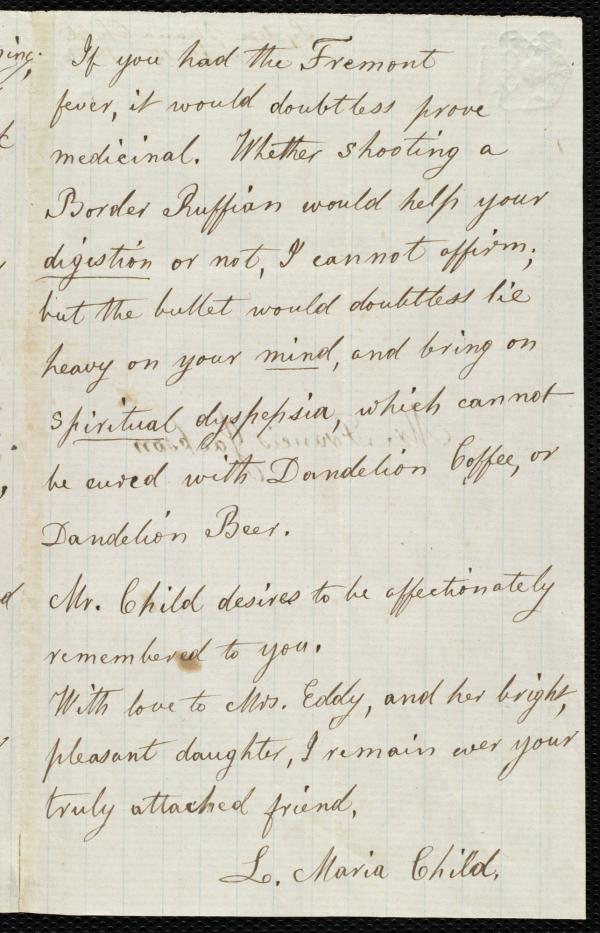 If you had the Fremont
fever, it would doubtless prove
medicinal. Whether shooting a
Border Ruffian would help your
digestion or not, I cannot affirm;
but the bullet would doubtless lie
heavy on your mind, and bring on
spiritual dyspepsia, which cannot
be cured with Dandelion Coffee, or
Dandelion Beer.
Mr. Child desires to be affectionately
remembered to you.
With love to Mrs. Eddy, and her bright,
pleasant daughter, I remain ever your
truly attached friend,
L. Maria Child.